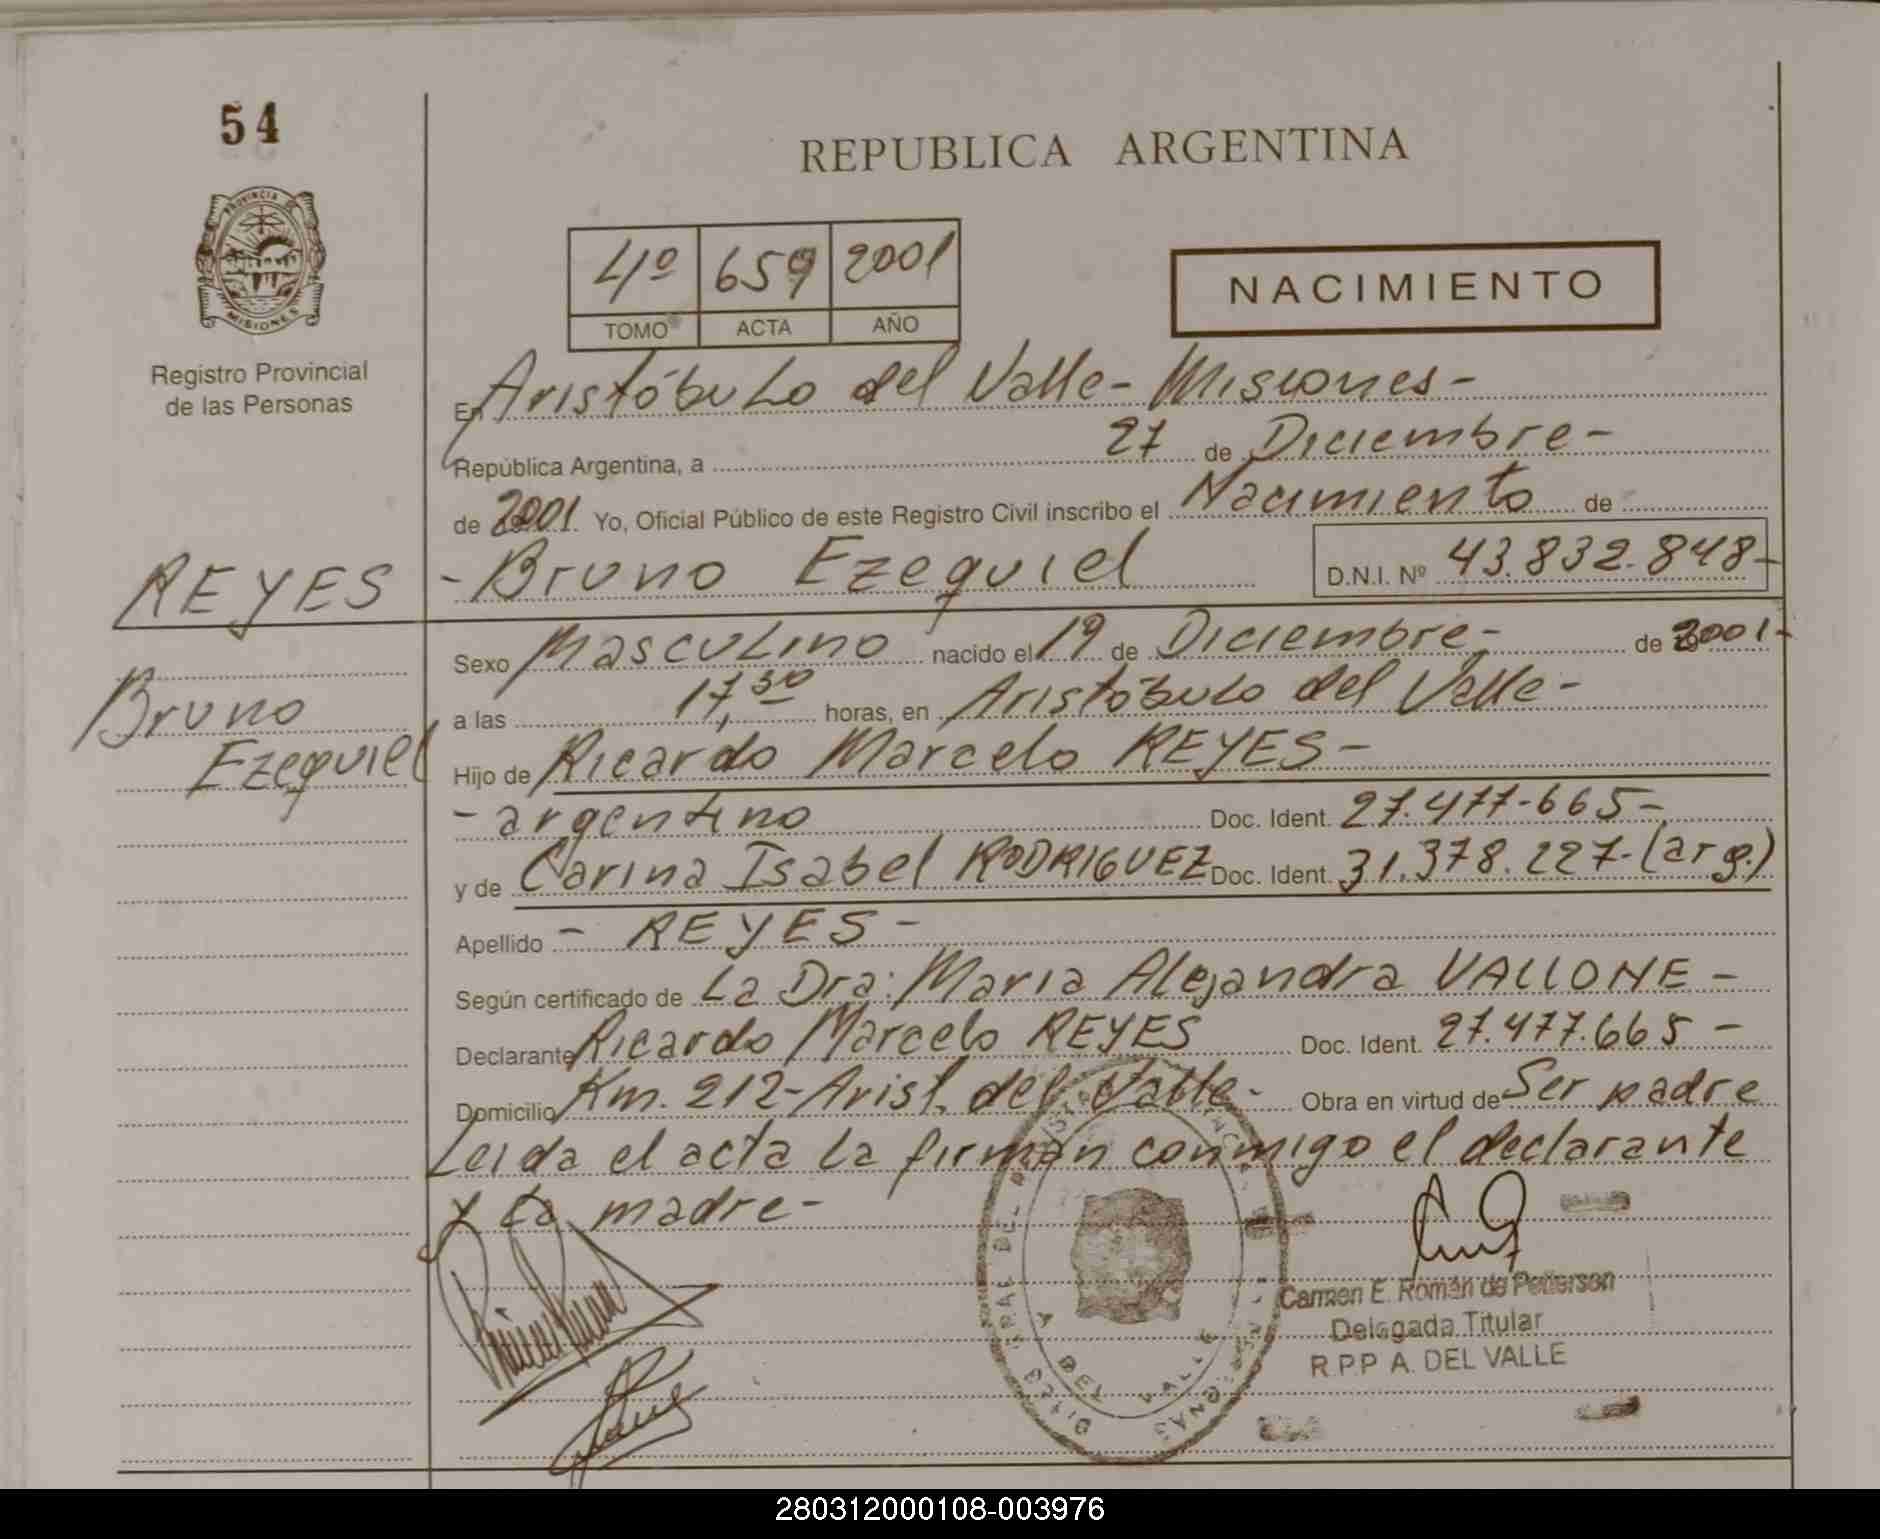 54
REPUBLICA ARGENTINA
PROVINCIA DE
MISIONES
Registro Provincial
de las Personas
4º 659 2001
TOMO ACTA AÑO
NACIMIENTO
En Aristóbulo del Valle - Misiones -
República Argentina, a 27 de Diciembre -
de 2001. Yo, Oficial Público de este Registro Civil inscribo el Nacimiento de
REYES
- Bruno Ezequiel D.N.I. Nº 43.832.848-
Bruno
Ezequiel
Sexo Masculino nacido el 19 de Diciembre - de 2001-
a las 17,30 horas, en Aristóbulo del Valle -
Hijo de Ricardo Marcelo REYES -
- argentino Doc. Ident. 27.477.665-
y de Carina Isabel RODRIGUEZ Doc. Ident. 31.378.227-(arg.)
Apellido - REYES -
Según certificado de La Dra: María Alejandra VALLONE -
Declarante Ricardo Marcelo REYES Doc. Ident. 27.477.665 -
Domicilio Km. 212- Arist. del Valle - Obra en virtud de Ser padre
Leida el acta la firman conmigo el declarante
y la madre -
A DEL VALLE
Carmen E. Román de Petterson
Delegada Titular
R.P.P A. DEL VALLE
280312000108-003976